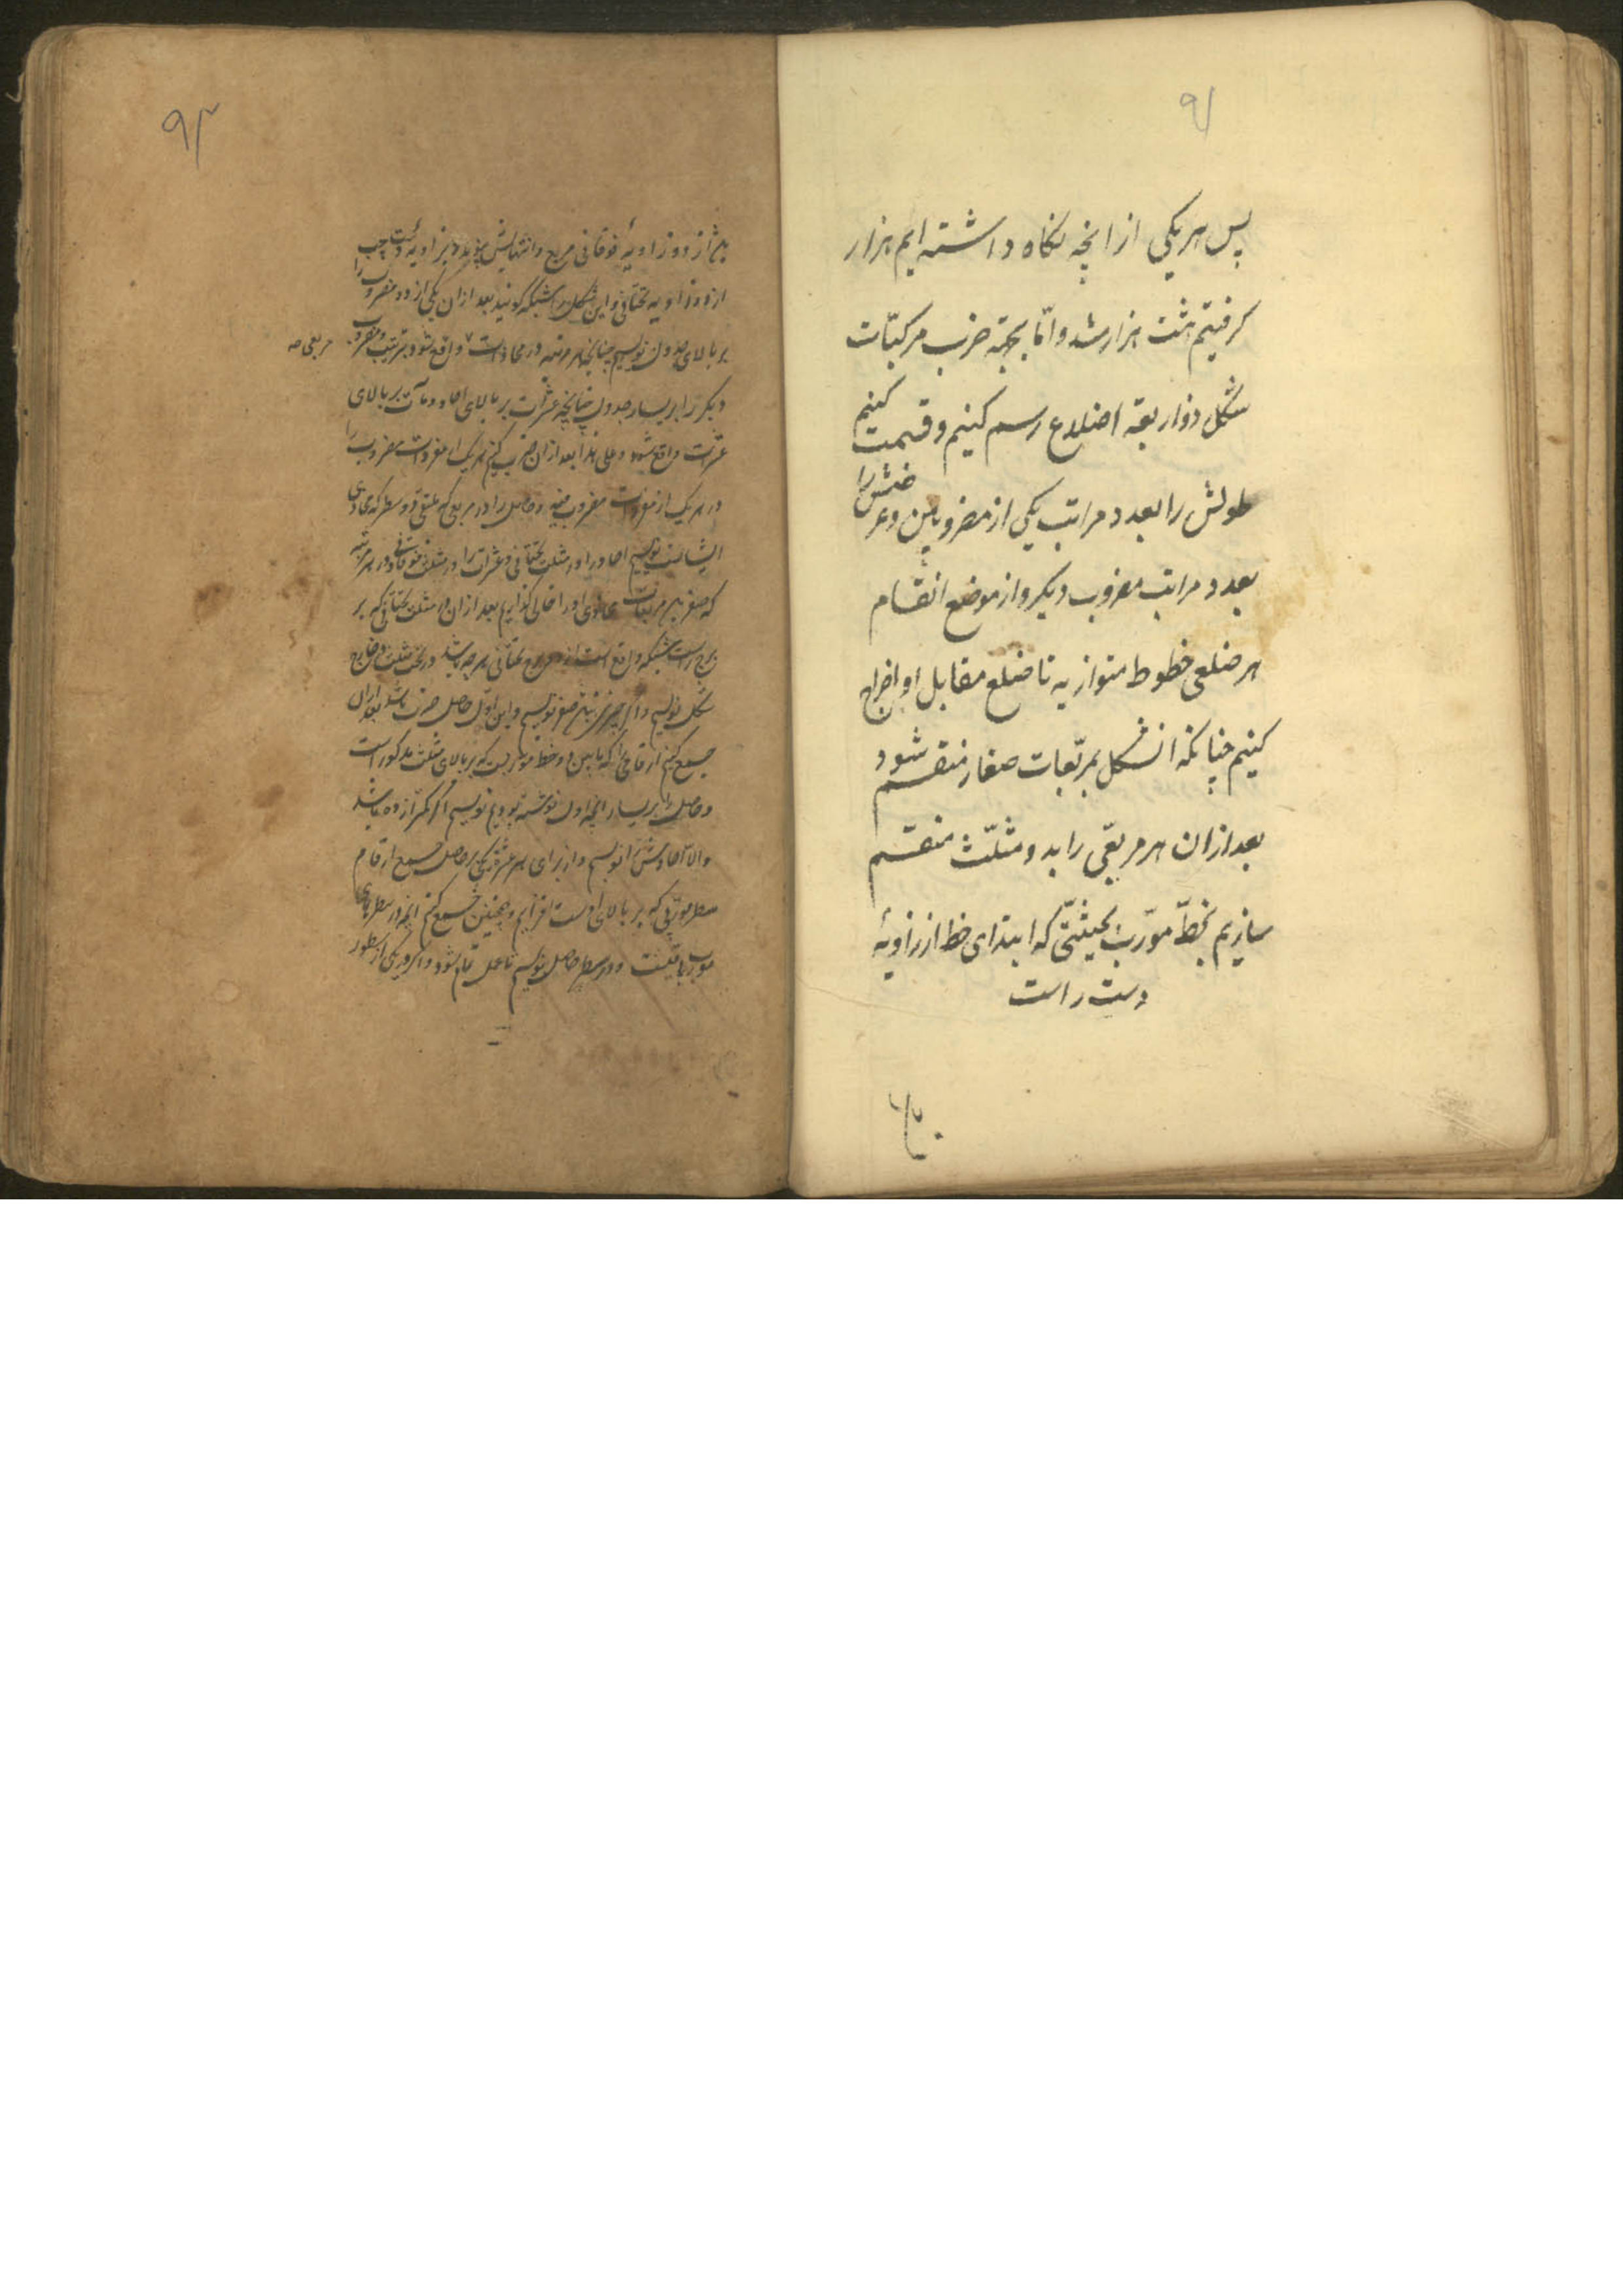 ۹۱
پس هر یکی از انچه نکاه داشته ایم هزار
کرفتیم هشت هزار شد و امّا بجهة ضرب مرکبّات
شکل ذو اربعة اضلاع رسم کنیم و قسمت کنیم
طولش را بعدد مراتب یکی از مضروبین و عرضش را
بعدد مراتب مضروب دیکر و از موضع انقسام
هر ضلعی خطوط متوازیه تا ضلع مقابل او اخراج
کنیم چنانکه انشکل بمربّعات صغار منقسم شود
بعد از ان هر مربّعی را بدو مثلّث منقسم
سازیم بخطّ مورّب بحیثیّتی که ابتدای خط از زاویهٔ
دست راست
۹۲
از دو زاویهٔ فوقانی مربع و انتهایش بزاویهٔ دست چپ
از دو زاویه تحتانی و این شکل را شبکه کویند بعد از ان یکی از دو مضروب را
بر بالای جدول نویسیم چنانچه هر مرتبه در محاذات واقع شود بترتیب و مضروب
مربعی صه
دیکر را بر یسار جدول چنانچه عشرات بر بالای احاد و مآت بر بالای
عشرات واقع شود و علی هذا بعد از ان ضرب کنیم هر یک از مفردات مضروب را
در هر یک از مفردات مضروب فیه و حاصل را در مربعی که ملتقی دو سطر که محاذی
ایشانست نویسیم احاد را در مثلث تحتانی و عشرات را در مثلث فوقانی و در هر مرتبه
که صفر باشد مربعات محاذی او را خالی کذاریم بعد از ان در مثلث تحتانی که بر
راست شبکه واقع است از تحتانی هر چه باشد در تحت مثلث در خارج
شکل نویسیم و اکر چیزی نباشد صفر نویسیم و این اوّل حاصل ضرب باشد بعد از ان
جمع کنیم ارقامی را که ما بین دو خط موربست که بر بالای مثلث مذکور است
و حاصل را بر یسار انچه اول نوشته بودیم نویسیم اکر کمتر از ده باشد
والّا احادش را نویسیم و از برای هر عشرة یکی بر حاصل جمع ارقام
سطر مورّبی که بر بالای اوست افزاییم و همچنین جمع کنیم انچه در سطرهای
مورب باقیست و در سطر حاصل نویسیم تا عمل تمام شود و اکر در یکی از سطور